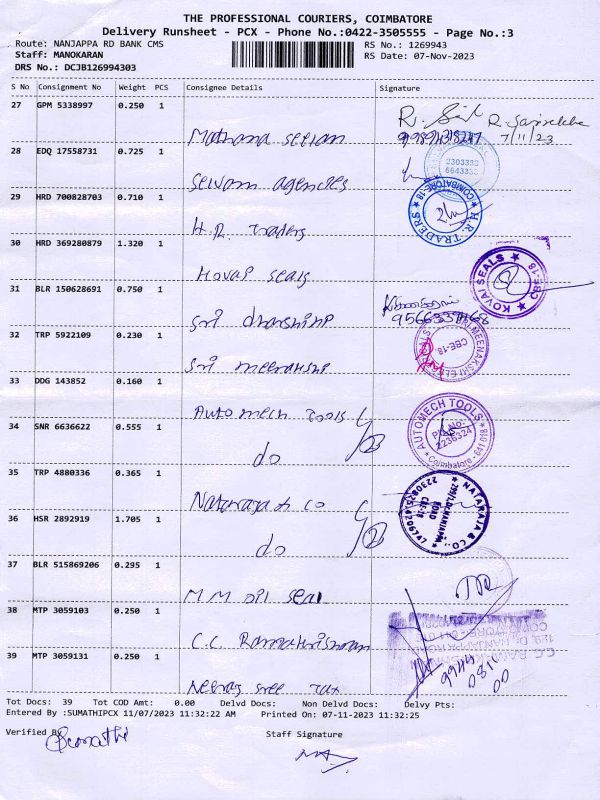 THE PROFESSIONAL COURIERS, COIMBATORE
Delivery Runsheet - PCX - Phone No.:0422-3505555 - Page No.:3
Route: NANJAPPA RD BANK CMS
RS No.: 1269943
Staff: MANOKARAN
RS Date: 07-Nov-2023
DRS No.: DCJB126994303
S No Consignment No Weight PCS Consignee Details Signature
27 GPM 5338997 0.250 1
7/11/23
28 EDQ 17558731 0.725 1
2303333
Selvam agencies
29 HRD 700828703 0.710 1
COIMBATORE-18
H.R. TRADERS
H.R. Traders
30 HRD 369280879 1.320 1
KOVAI SEALS
CBE-18
Kovai seals
31 BLR 150628691 0.750 1
Sri dharshini
32 TRP 5922109 0.230 1
CBE-18
Sri meenakshi
33 DDG 143852 0.160 1
Automech Tools
AUTOMECH TOOLS
34 SNR 6636622 0.555 1
2236324
Coimbatore - 641 018
do
35 TRP 4880336 0.365 1
Nataraja & Co
NATARAJA & CO.,
36 HSR 2892919 1.705 1
do
37 BLR 515869206 0.295 1
MM oil seal
38 MTP 3059103 0.250 1
C.C. Ramakrishnan
39 MTP 3059131 0.250 1
9944
0811
00
Tot Docs: 39 Tot COD Amt: 0.00 Delvd Docs: Non Delvd Docs: Delvy Pts:
Entered By :SUMATHIPCX 11/07/2023 11:32:22 AM Printed On: 07-11-2023 11:32:25
Verified By
Staff Signature